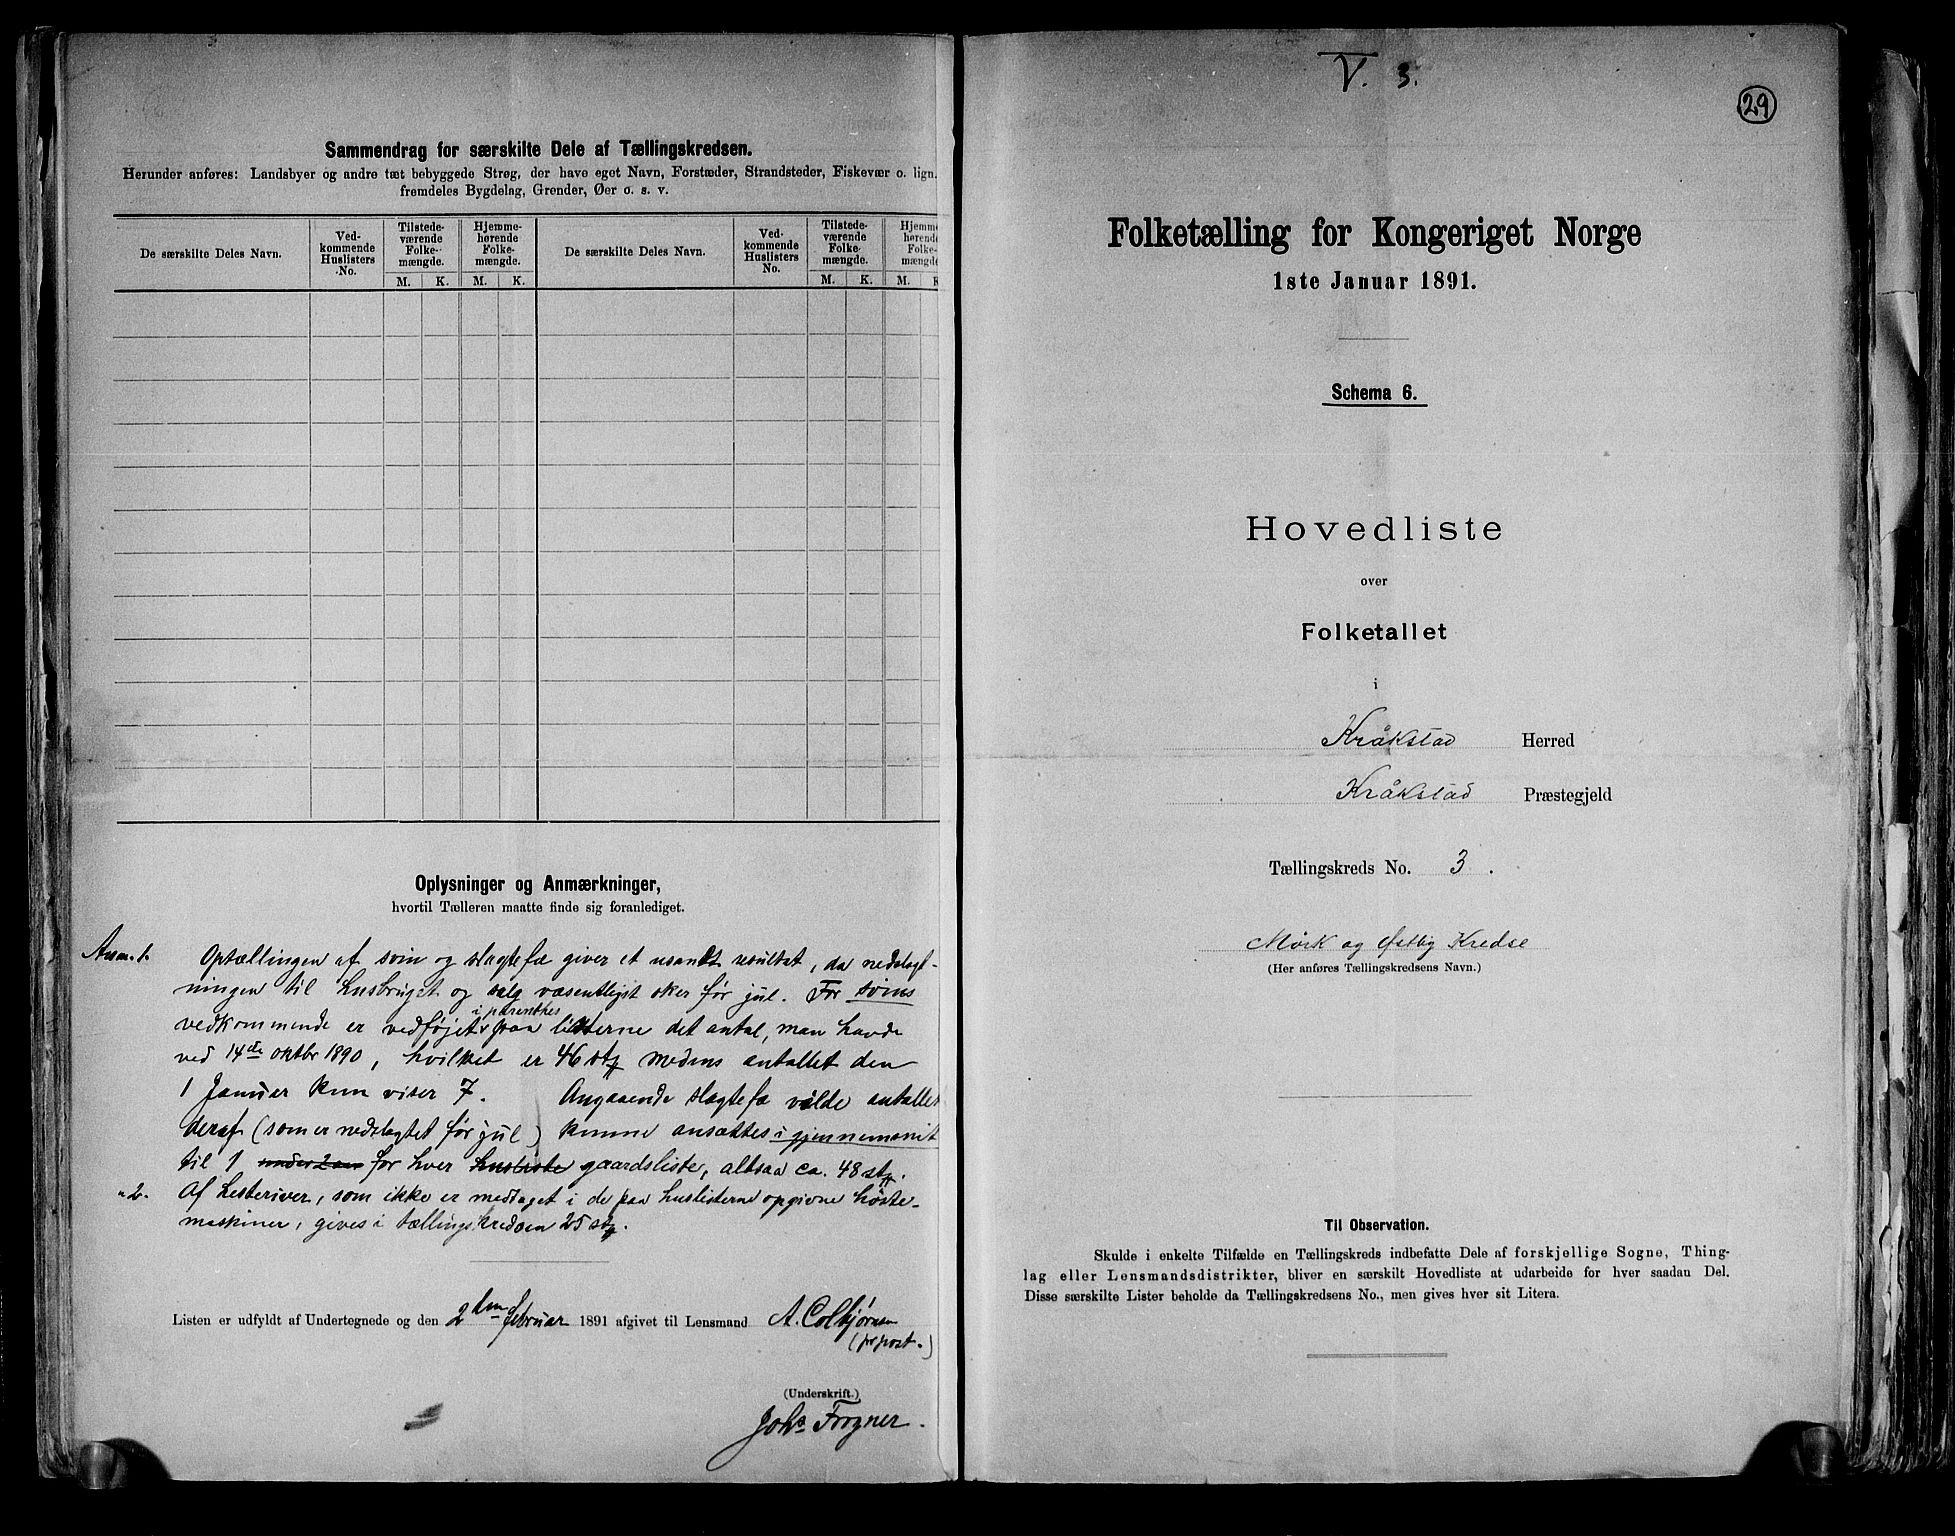 Sammendrag for særskilte Dele af Tællingskredsen.
Herunder anføres: Landsbyer og andre tæt bebyggede Strøg, der have eget Navn, Forstæder, Strandsteder, Fiskevær o. lign.
fremdeles Bygdelag, Grender, Øer o. s. v.
De særskilte Deles Navn.
Ved-
kommende
Huslisters
No.
Tilstede-
værende
Folke-
mængde.
M. K.
Hjemme-
hørende
Folke-
mængde.
M. K.
De særskilte Deles Navn.
Ved-
kommende
Huslisters
No.
Tilstede-
værende
Folke-
mængde.
M. K.
Hjemme
hørende
Folke-
mængde
M. K
Oplysninger og Anmærkninger,
hvortil Tælleren maatte finde sig foranlediget.
Anm. 1. Optællingen af svin og slagtefæ giver et usandt resultat, da nedslagt-
ningen til husbruget og salg væsentligst sker før jul. For svins
i parenthes
vedkommende er vedføjet paa listerne det antal, man havde
ved 14de oktbr 1890, hvilket er 46 stk medens antallet den
1 Januar kun viser 7. Angaaende slagtefæ vilde antallet
deraf (som er nedslagtet før jul) kunne ansættes i gjennemsnit
til 1 for hver husliste gaardsliste, altsaa ca. 48 stk.
" 2. Af hesteriver, som ikke er medtaget i de paa huslisterne opgivne høste-
maskiner, gives i tællingskredsen 25 stk.
Listen er udfyldt af Undertegnede og den 2den februar 1891 afgivet til Lensmand A. Colbjørnsen
(pr post.)
(Underskrift.)
Johs Frogner.
V. 3.
29
Folketælling for Kongeriget Norge
1ste Januar 1891.
Schema 6.
Hovedliste
over
Folketallet
i
Kråkstad Herred
Kråkstad Præstegjeld
Tællingskreds No. 3.
Mørk og Østby Kredse
(Her anføres Tællingskredsens Navn.)
Til Observation.
Skulde i enkelte Tilfælde en Tællingskreds indbefatte Dele af forskjellige Sogne, Thing-
lag eller Lensmandsdistrikter, bliver en særskilt Hovedliste at udarbeide for hver saadan Del.
Disse særskilte Lister beholde da Tællingskredsens No., men gives hver sit Litera.